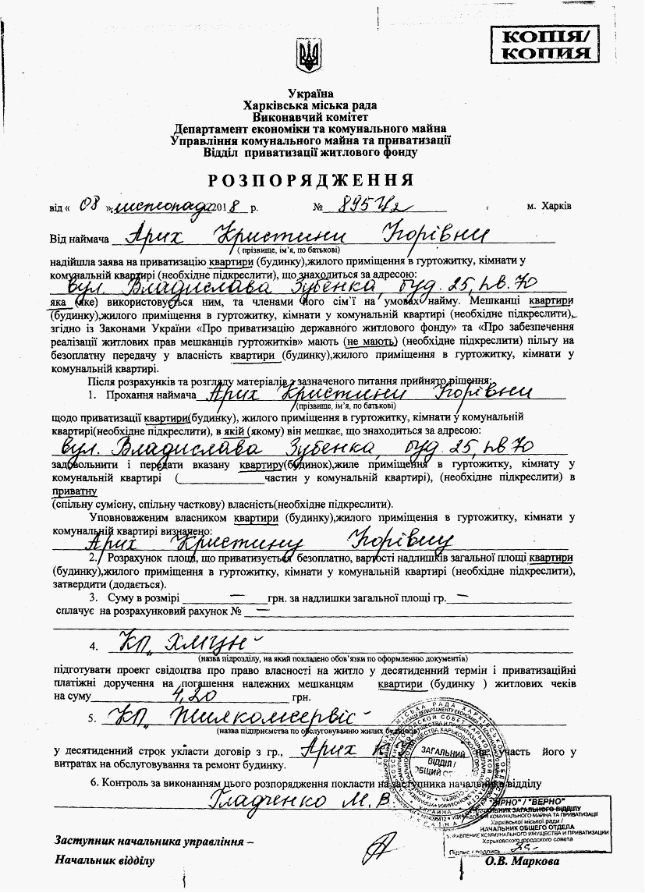 КОПІЯ/
КОПИЯ
Україна
Харківська міська рада
Виконавчий комітет
Департамент економіки та комунального майна
Управління комунального майна та приватизації
Відділ приватизації житлового фонду
РОЗПОРЯДЖЕННЯ
від « 08 » листопад 2018 р. № м. Харків
Від наймача Арих Кристини Ігорівни
( прізвище, ім’я, по батькові)
надійшла заява на приватизацію квартири (будинку),жилого приміщення в гуртожитку, кімнати у
комунальній квартирі (необхідне підкреслити), що знаходиться за адресою:
вул. Владислава Зубенка, буд. 25, кв. 70
яка (яке) використовується ним, та членами його сім’ї на умовах найму. Мешканці квартири
(будинку),жилого приміщення в гуртожитку, кімнати у комунальній квартирі (необхідне підкреслити),
згідно із Законами України «Про приватизацію державного житлового фонду» та «Про забезпечення
реалізації житлових прав мешканців гуртожитків» мають (не мають) (необхідне підкреслити) пільгу на
безоплатну передачу у власність квартири (будинку),жилого приміщення в гуртожитку, кімнати у
комунальній квартирі.
Після розрахунків та розгляду матеріалів з зазначеного питання прийнято рішення:
1. Прохання наймача Арих Кристини Ігорівни
(прізвище, ім’я, по батькові)
щодо приватизації квартири(будинку), жилого приміщення в гуртожитку, кімнати у комунальній
квартирі(необхідне підкреслити), в якій (якому) він мешкає, що знаходиться за адресою:
вул. Владислава Зубенка, буд. 25, кв. 70
задовольнити і передати вказану квартиру(будинок),жиле приміщення в гуртожитку, кімнату у
комунальній квартирі (____________ частин у комунальній квартирі), (необхідне підкреслити) в
приватну
(спільну сумісну, спільну часткову) власність(необхідне підкреслити).
Уповноваженим власником квартири (будинку),жилого приміщення в гуртожитку, кімнати у
комунальній квартирі визначено:
Арих Кристину Ігорівну
2. Розрахунок площі, що приватизується безоплатно, вартості надлишків загальної площі квартири
(будинку),жилого приміщення в гуртожитку, кімнати у комунальній квартирі (необхідне підкреслити),
затвердити (додається).
3. Суму в розмірі — грн. за надлишки загальної площі гр. —
сплачує на розрахунковий рахунок № —
4. КП „ХМЦН”
(назва підрозділу, на який покладено обов’язки по оформленню документів)
підготувати проект свідоцтва про право власності на житло у десятиденний термін і приватизаційні
платіжні доручення на погашення належних мешканцям квартири (будинку ) житлових чеків
на суму 4,20 грн.
5. КП „Жилкомсервіс”
(назва підприємства по обслуговуванню жилих будинків)
у десятиденний строк укласти договір з гр., Арих К. на участь його у
витратах на обслуговування та ремонт будинку.
6. Контроль за виконанням цього розпорядження покласти на заступника начальника відділу
Гладченко М. В.
ЗАГАЛЬНИЙ
ВІДДІЛ /
"ВІРНО" / "ВЕРНО"
НАЧАЛЬНИК ЗАГАЛЬНОГО ВІДДІЛУ
Харківської міської ради /
НАЧАЛЬНИК ОБЩЕГО ОТДЕЛА
Харьковского городского совета
Підпис / подпись
Заступник начальника управління –
Начальник відділу О.В. Маркова